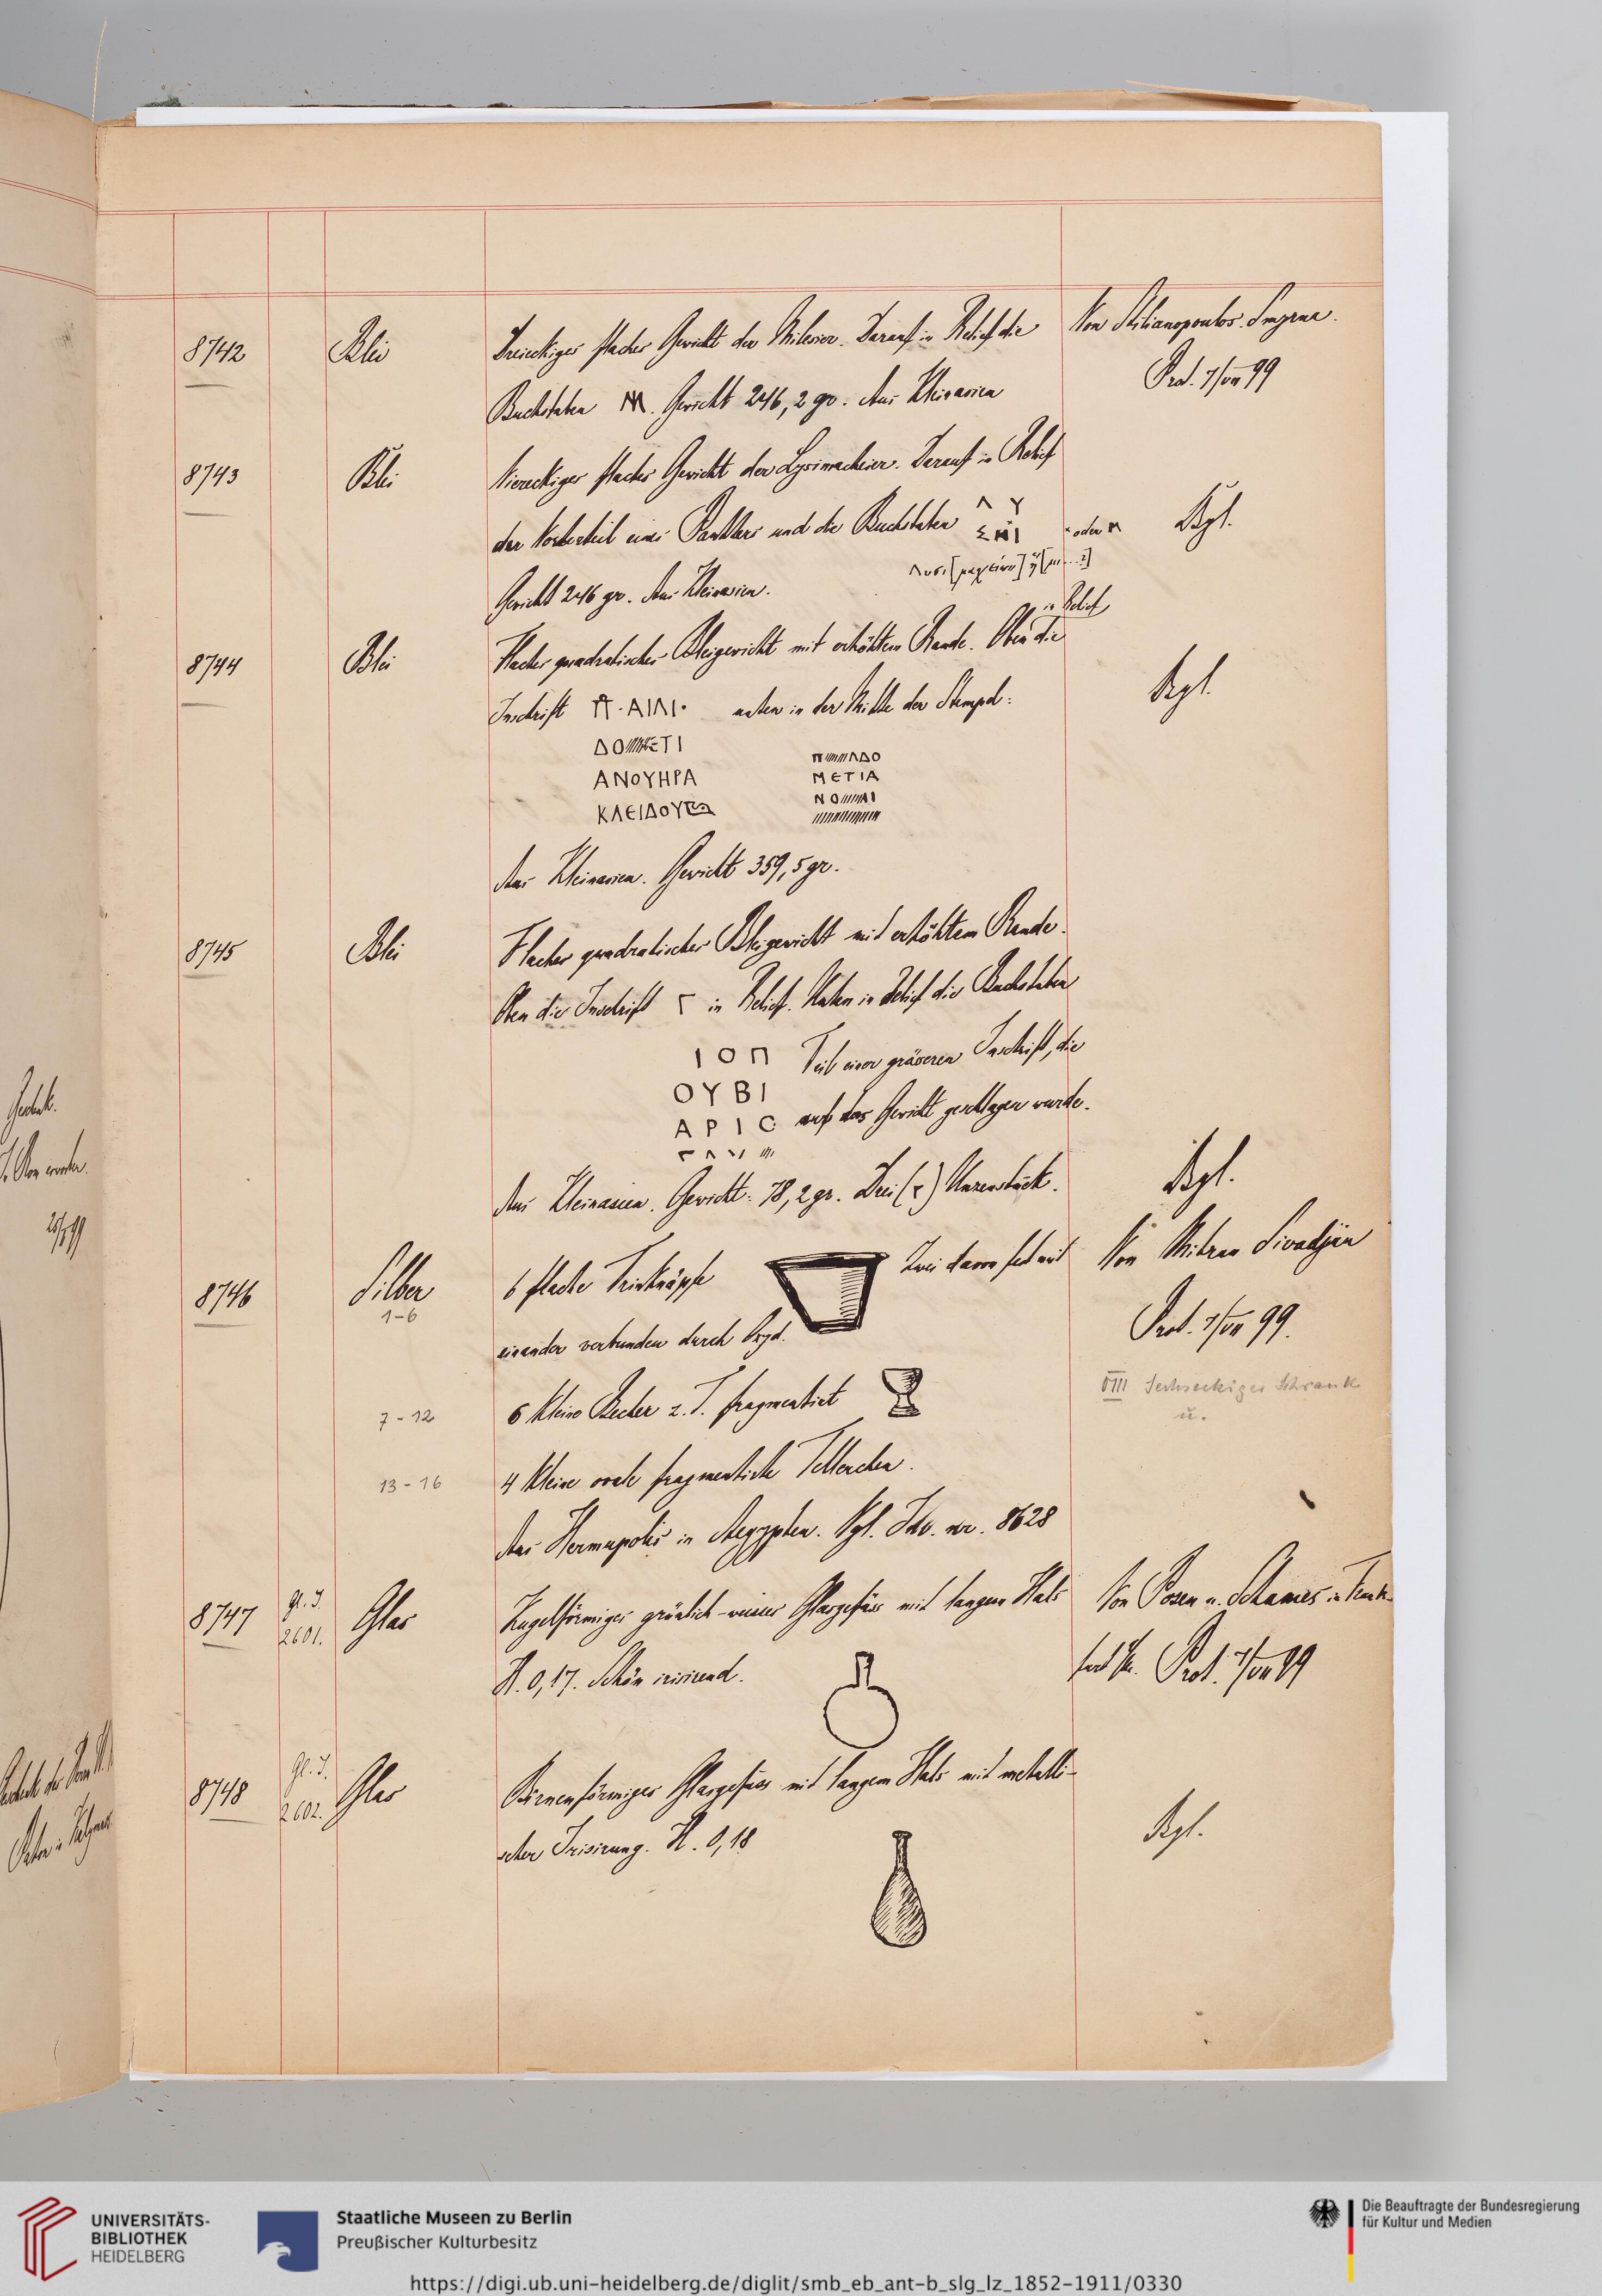 8742 Blei Dreieckiges flaches Gewicht der Milesier. Darauf in Relief die Von Stilianopoulos. Smyrna.
Buchstaben Gewicht 246,2 gr. Aus Kleinasien Prot. 7/VII 99
8743 Blei Viereckiges flaches Gewicht der Lysimacheier. Darauf in Relief
der Vorderteil eines Panthers und die Buchstaben Λ Υ
oder Dsgl.
Λυσι[μαχείων]
Gewicht 246 gr. Aus Kleinasien.
in Relief
8744 Blei Flaches quadratisches Bleigewicht mit erhöhtem Rande. Oben die
Inschrift unten in der Mitte der Stempel: Dsgl.
ΔΟ ΕΤΙ
Π ΛΔΟ
ΑΝΟΥΗΡΑ ΜΕΤΙΑ
ΚΛΕΙΔΟΥ ΝΟ ΑΙ
Aus Kleinasien. Gewicht 359,5 gr.
8745 Blei Flaches quadratisches Bleigewicht mit erhöhtem Rande.
Oben die Inschrift Γ in Relief. Unten in Relief die Buchstaben
Ι Ο Π Teil einer grösseren Inschrift, die
Ο Υ Β Ι
Α Ρ Ι C auf das Gewicht geschlagen wurde.
Aus Kleinasien. Gewicht: 78,2 gr. Drei (Γ) Unzenstück. Dsgl.
8746 Silber 6 flache Trinknäpfe Zwei davon fest mit Von Mihran Sivadjian
1-6
einander verbunden durch Oxyd. Prot. 7/VII 99.
7-12 6 kleine Becher z. T. fragmentiert
VIII Sechseckiger Schrank
u.
13-16 4 kleine ovale fragmentierte Tellerchen.
Aus Hermupolis in Aegypten. Vgl. Inv. nr. 8628
8747 Gl. I. 2601. Glas Kugelförmiges grünlich-weisses Glasgefäss mit langem Hals Von Posen u. Schames in Frank-
H. 0,17. Schön irisirend. furt M. Prot. 7/VII 99
8748 Gl. I. 2602. Glas Birnenförmiges Glasgefäss mit langem Hals mit metalli-
scher Irisirung. H. 0,18 Dsgl.
Geschenk.
25/5 99
UNIVERSITÄTS-
BIBLIOTHEK
HEIDELBERG
Staatliche Museen zu Berlin
Preußischer Kulturbesitz
Die Beauftragte der Bundesregierung
für Kultur und Medien
https://digi.ub.uni-heidelberg.de/diglit/smb_eb_ant-b_slg_lz_1852-1911/0330